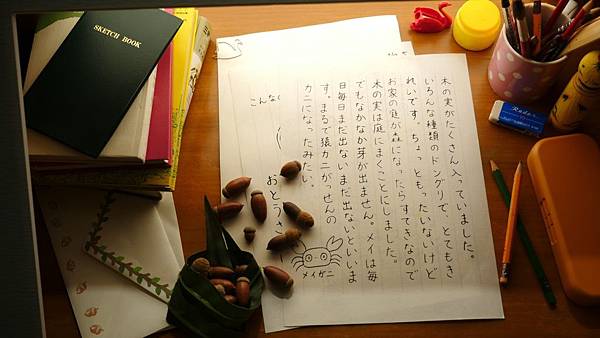 SKETCH BOOK
木の実がたくさん入っていました。
いろんな種類のドングリで、とてもき
れいです。ちょっともったいないけど
お家の庭が森になったらすてきなので
木の実は庭にまくことにしました。
でもなかなか芽が出ません。メイは毎
日毎日まだ出ないまだ出ないといいま
す。まるで猿カニがっせんの
カニになったみたい。
メイガニ
おとうさ
こんな
Radar